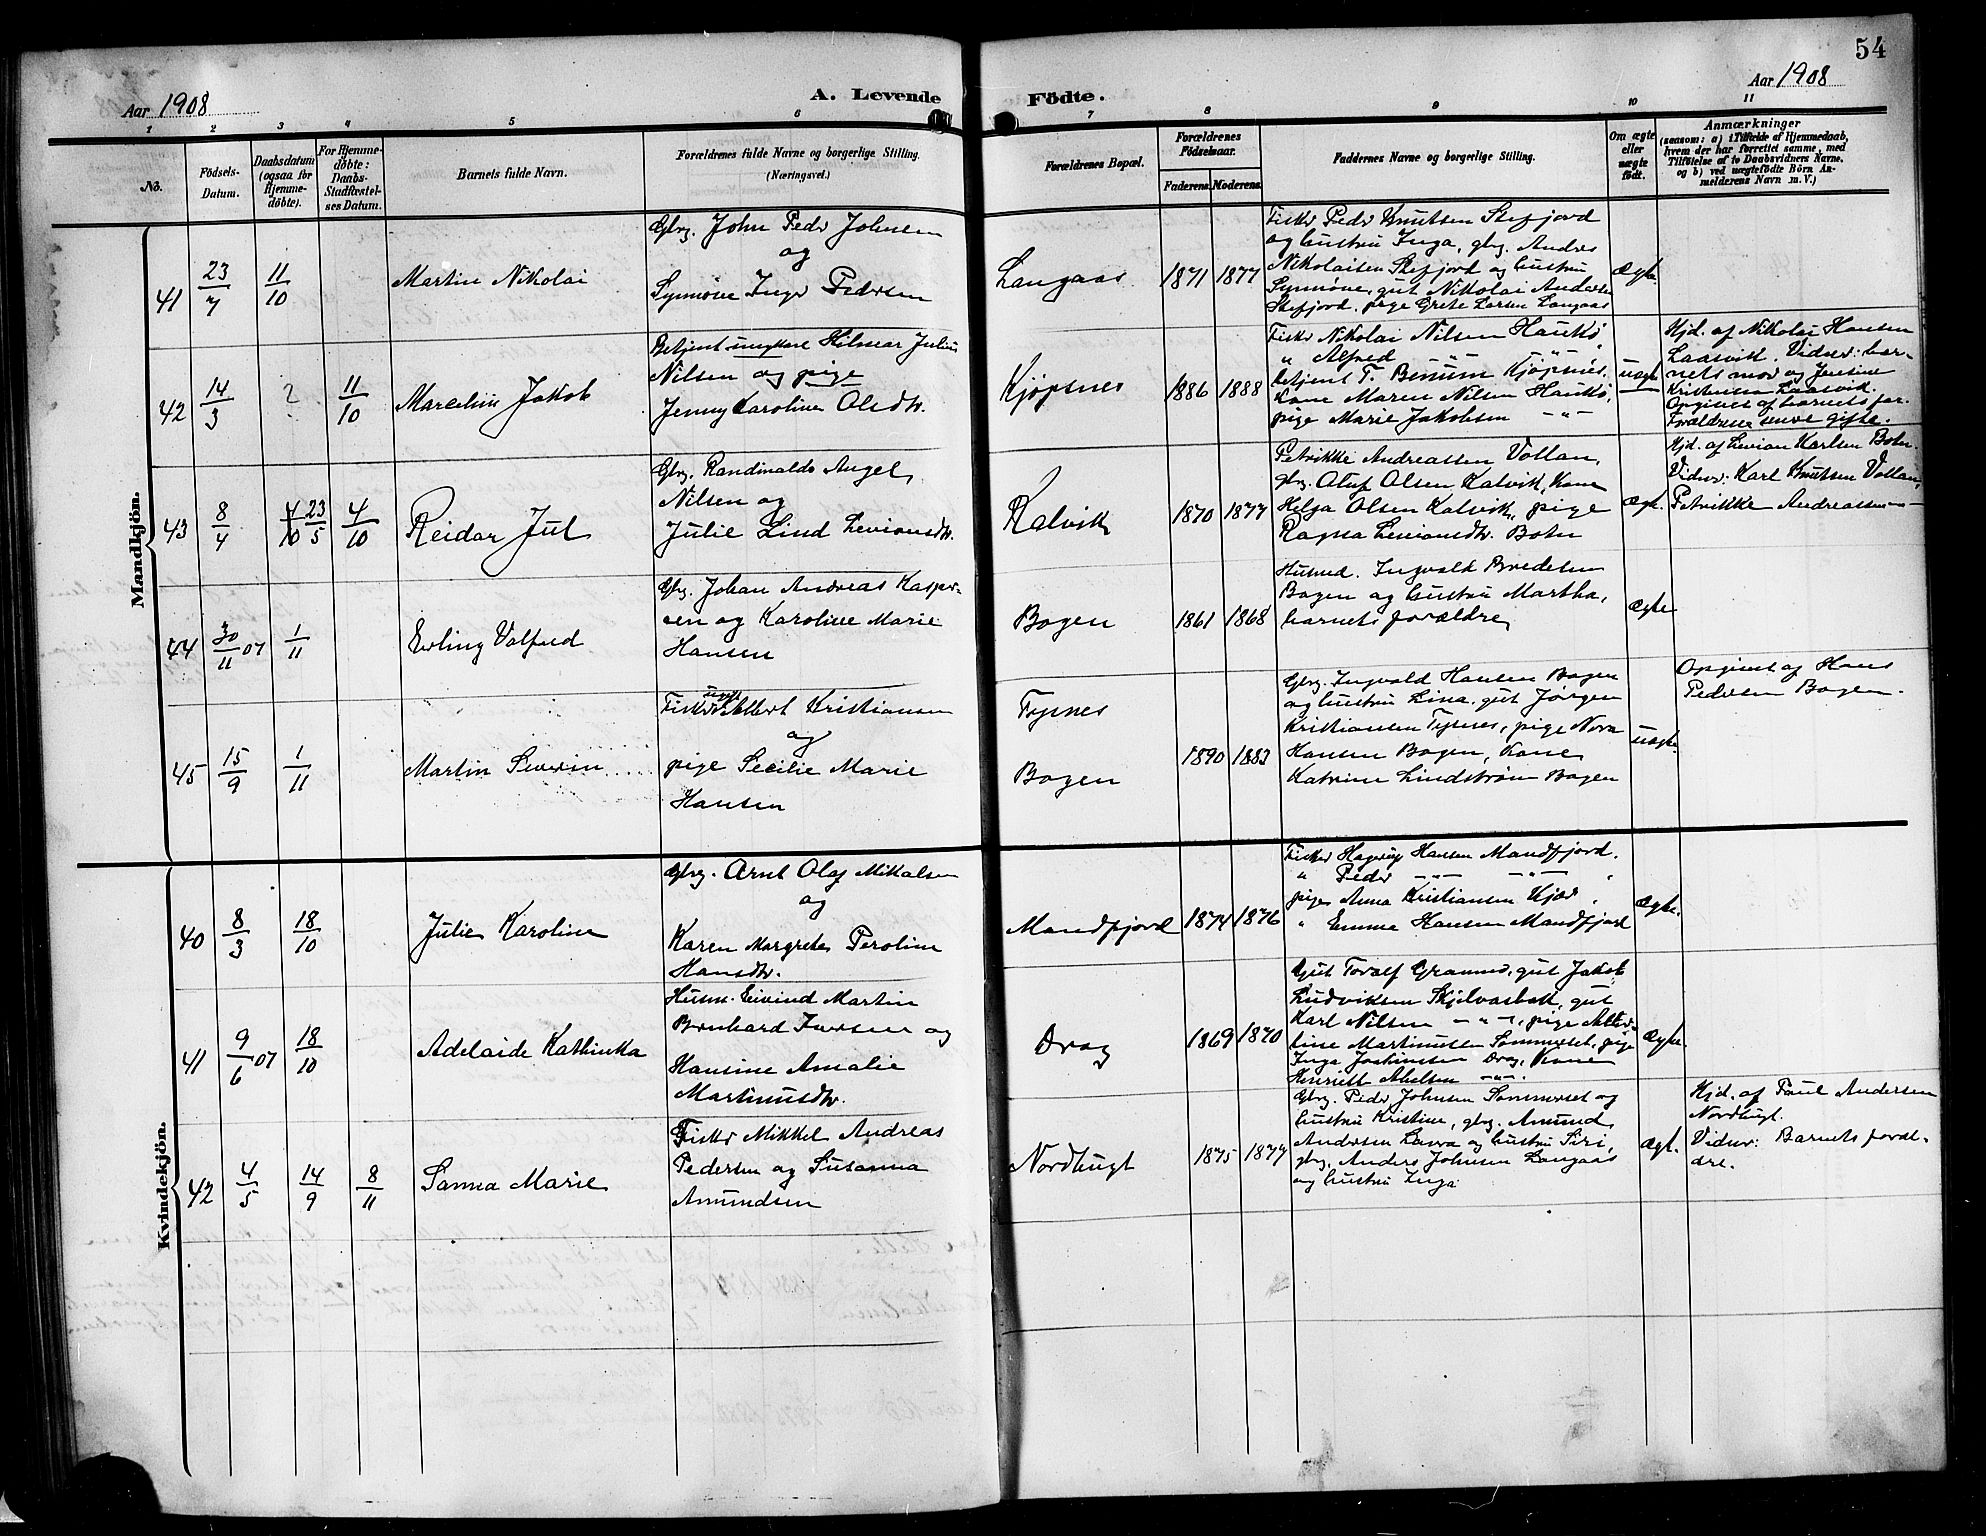 54
Aar 1908
A. Levende
Födte.
Aar 1908
1 2 3 4 5 6 7 8 9 10 11
No.
Födsels-
Datum.
Daabsdatum
(ogsaa for
Hjemme-
døbte).
For Hjemme-
döbte:
Daabs-
Stadfæstel-
ses Datum.
Barnets fulde Navn.
Forældrenes fulde Navne og borgerlige Stilling.
(Næringsvei.)
Forældrenes Bopæl.
Forældrenes
Födselsaar.
Faderens. Moderens.
Faddernes Navne og borgerlige Stilling.
Om ægte
eller
uægte
födt.
Anmærkninger
(saasom: a) i Tilfælde af Hjemmedaab,
hvem der har forrettet samme, med
Tilföielse af to Daabsvidners Navne,
og b) ved uægtefödte Börn An-
melderens Navn m. V.)
Mandkjön.
41
23/7
11/10
Martin Nikolai
Gbrg. John Peder Johnsen
og
Synnøve Inger Pedersen
Langaas
1871 1877
Fisker Peder Knutsen Stefjord
og hustru Inga, gbrg. Andreas
Nikolaisen Stefjord og hustru
Synnøve, gut Nikolai Anderse
Stefjord. pige Grete Larsen Langaas
Ægte
42
14/3
?
11/10
Marcelius Jakob
Betjent ungkarl Hilmar Julius
Nilsen og pige
Jenny Karoline Olsdtr.
Kjøpsnes
1886 1888
Fisker Nikolai Nilsen Haukø,
" Alfred " "
betjent T. Benum Kjøpsnes,
Kone Maren Nilsen Haukø,
pige Marie Jakobsen -"-
uægte
Hjd. af Nikolai Hansen
Laasvik. Vidner: bar-
nets mor og Jensine
Kristensen Laasvik.
Opgivet af barnets far.
Forældrene senere gifte.
43
8/4
4/10 23/5
4/10
Reidar Jul
Gbrg. Randinaldo Angel
Nilsen og
Julie Lind Levionsdtr.
Kalvik
1870 1877
Petrikke Andreassen Vollan,
gbrg. Oluf Olsen Kalvik, Kone
Helga Olsen Kalvik, pige
Ragna Levionsdtr. Botn
Ægt.
Hjd. af Levion Karlsen Botn
Vidner: Karl Knutsen Vollan,
Petrikke Andreassen -"-
44
30/11 07
1/11
Erling Valfred
Gbrg. Johan Andreas Kasper-
sen og Karoline Marie
Hansen
Bogen
1861 1868
Husmd. Ingvald Bredesen
Bogen og hustru Martha,
barnets forældre
Ægte
45
15/9
1/11
Martin Severin
ungk.
Fisker Albert Kristiansen
og
pige Secilie Marie
Hansen
Tysnes
Bogen
1890 1883
Gbrg. Ingvald Hansen Bogen
og hustru Lina, gut Jørgen
Kristiansen Tysnes, pige Nora
Hansen Bogen, Kone
Katrine Lindstrøm Bogen
uægte
Opgivet af Hans
Pedersen Bogen.
Kvindekjön.
40
8/3
18/10
Julie Karoline
Gbrg. Arnt Olaf Mikalsen
og
Karen Margrethe Peroline
Hansdtr.
Mandfjord
1874 1876
Fisker Hagerup Hansen Mandfjord.
" Peder -"- -"-
pige Anna Kristiansen Kjær,
" Emma Hansen Mandfjord
Ægte.
41
9/6 07
18/10
Adelaide Kathinka
Husm. Eivind Martin
Bernhard Iversen og
Hansine Amalie
Martinusdtr.
Drag
1869 1870
Gut Toralf Grannes, gut Jakob
Ludviksen Skjelvasbak, gut
Karl Nilsen -"-, pige Alber-
tine Martinussen Sommerset, pige
Inga Joakimsen Drag, Kone
Henriette Abelsen -"-.
Ægte
42
4/5
14/9
8/11
Sanna Marie
Fisker Mikkel Andreas
Pedersen og Susanna
Amundsen
Nordbugt
1875 1877
Gbrg. Peder Johnsen Sommerset og
hustru Kristine, gbrg. Amund
Andersen Lavra og hustru Siri,
gbrg. Anders Johnsen Langaas
og hustru Inga
Ægt.
Hjd. af Paul Andersen
Nordbugt.
Vidner: Barnets foræl-
dre.